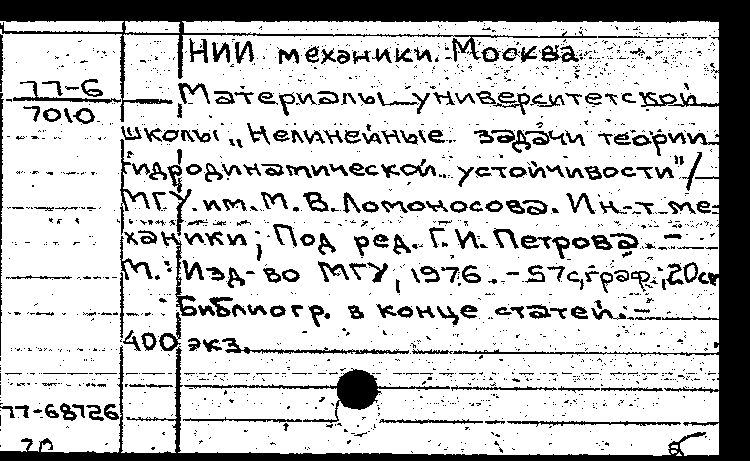 НИИ механики. Москва
77-6
7010
Материалы университетской
школы „Нелинейные задачи теории
гидродинамической устойчивости"/
МГУ им. М. В. Ломоносова. Ин-т ме-
ханики; Под ред. Г. И. Петрова. –
М.: Изд-во МГУ, 1976. – 57с, граф.; 20см
Библиогр. в конце статей. –
400 экз.
77-68726